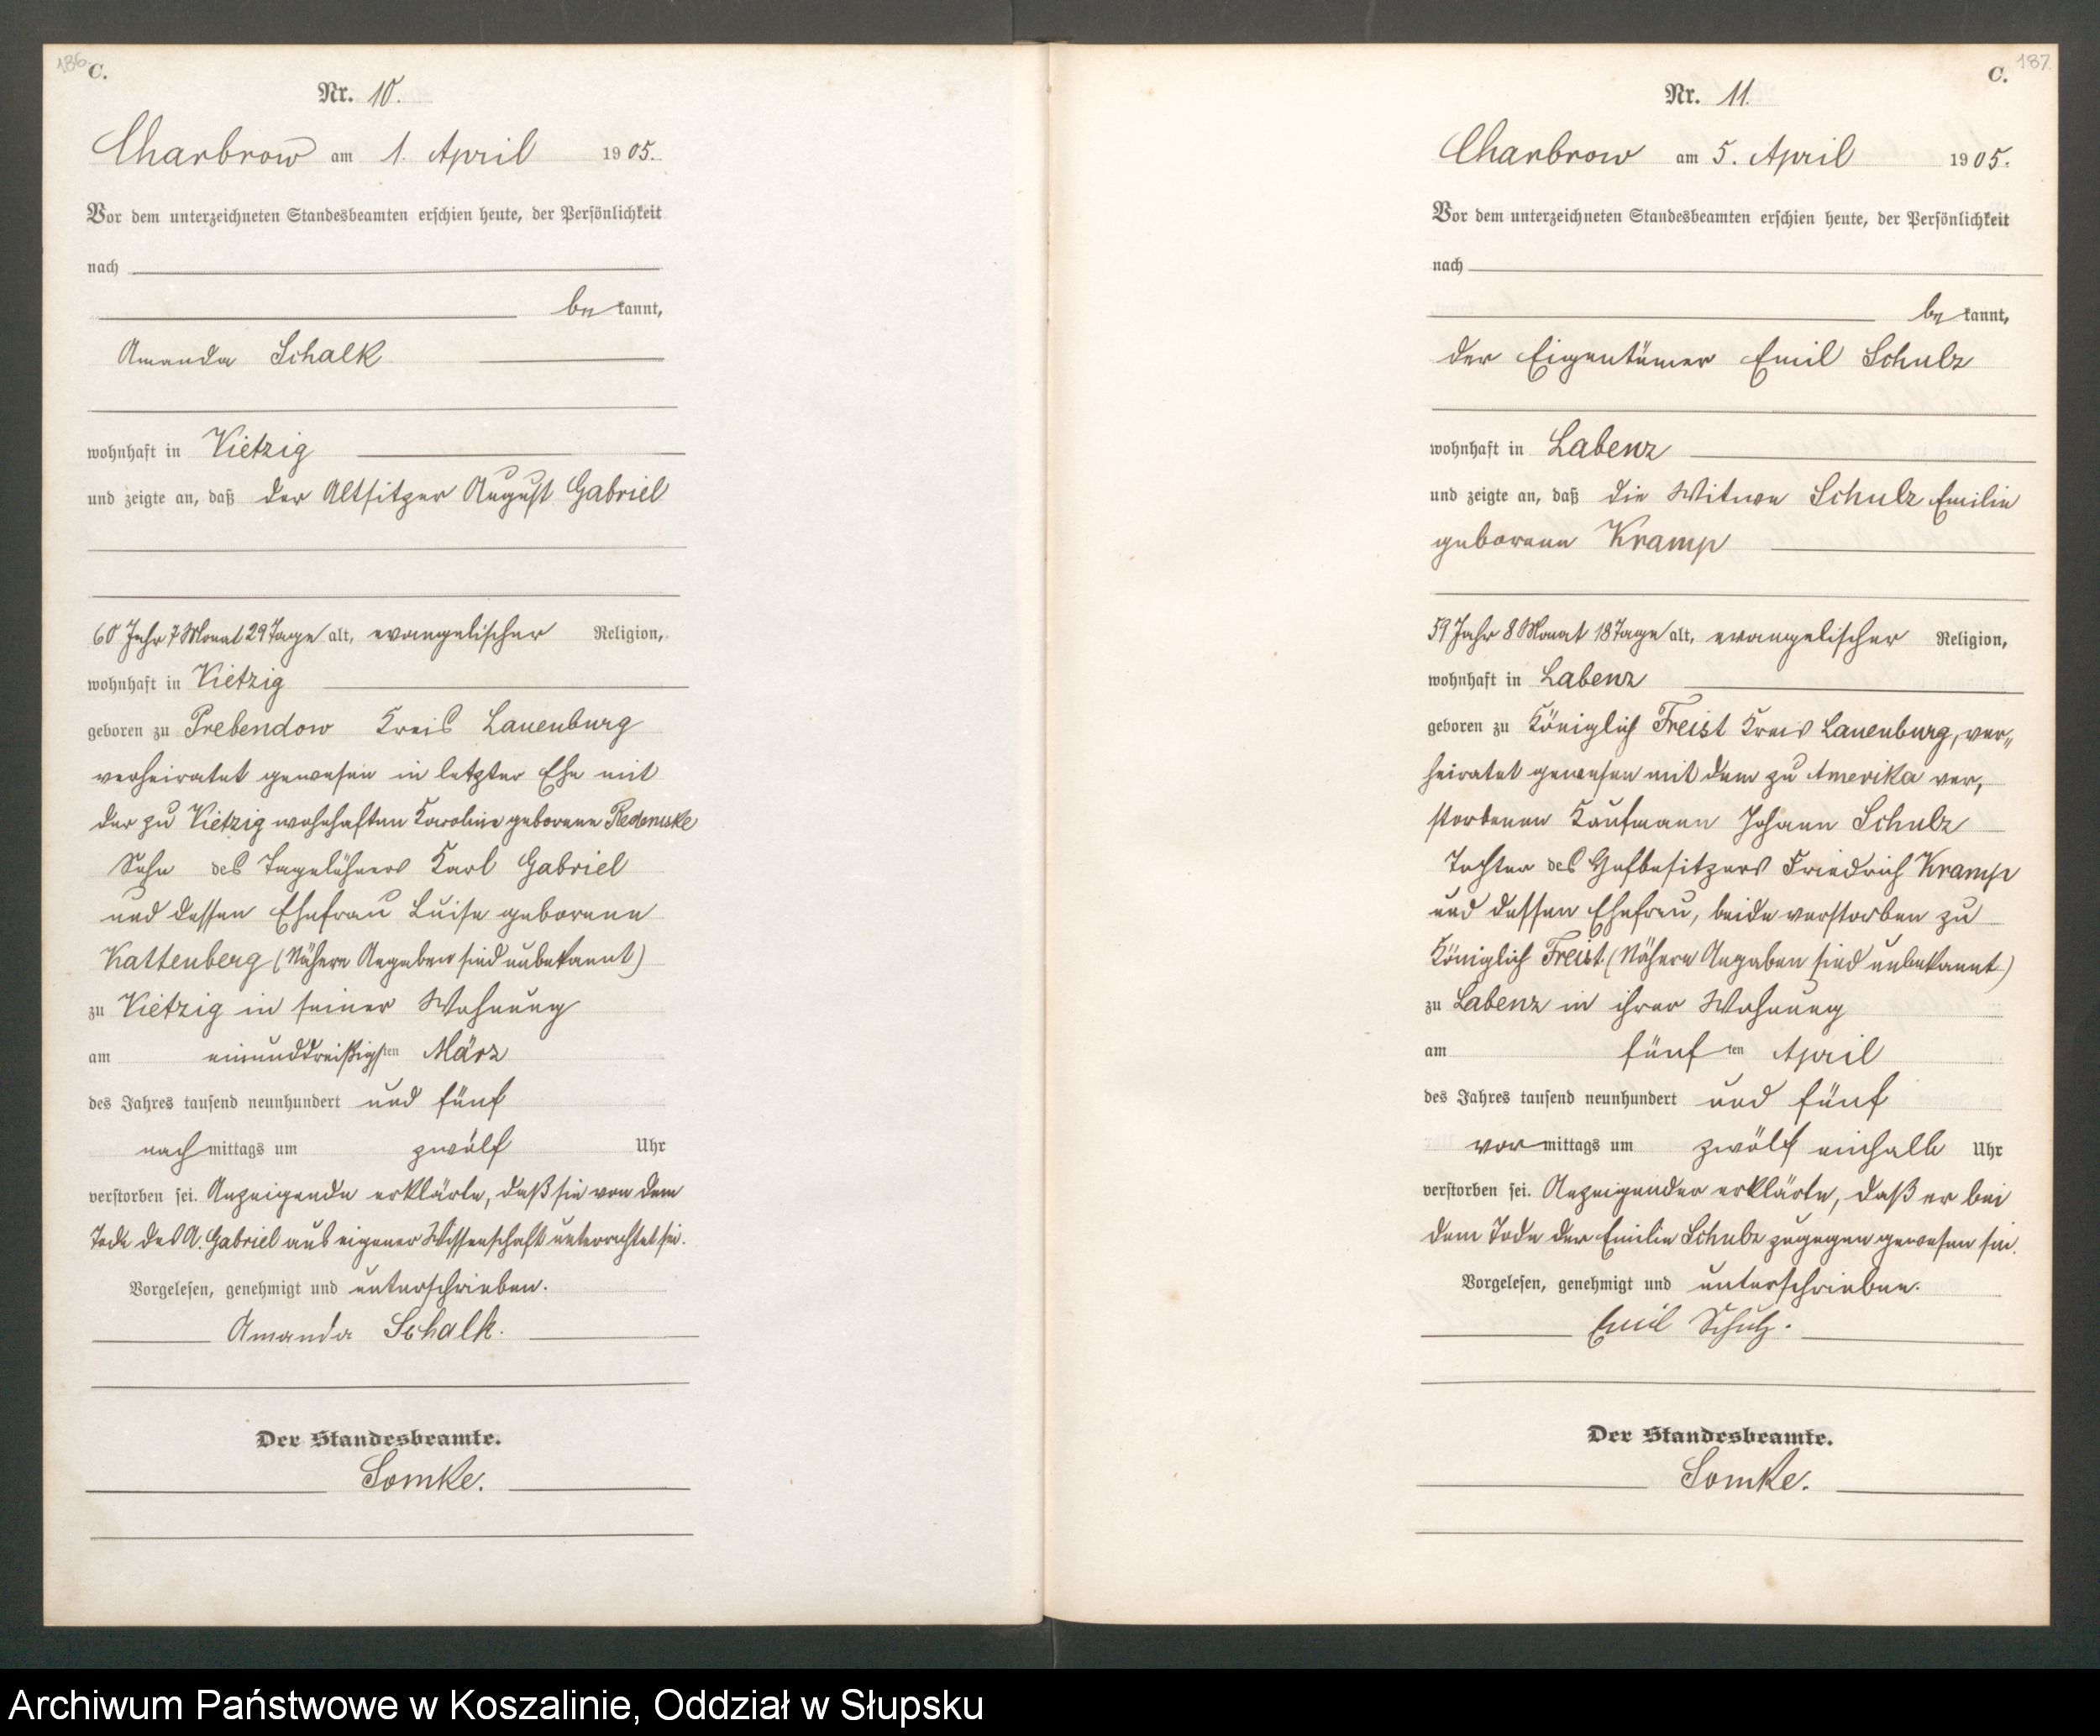 186
C.
Nr. 10.
Charbrow am 1. April 1905.
Vor dem unterzeichneten Standesbeamten erschien heute, der Persönlichkeit
nach
bekannt,
Amanda Schalk
wohnhaft in Vietzig
und zeigte an, daß der Altsitzer August Gabriel
60 Jahr 7 Monat 29 Tage alt, evangelischer Religion,
wohnhaft in Vietzig
geboren zu Prebendow Kreis Lauenburg
verheiratet gewesen in letzter Ehe mit
der zu Vietzig wohnhaften Karoline geborene
Sohn des Tagelöhners Karl Gabriel
und dessen Ehefrau Luise geborene
Kattenberg (Nähere Angaben sind unbekannt)
zu Vietzig in seiner Wohnung
am einunddreißigsten März
des Jahres tausend neunhundert und fünf
nachmittags um zwölf Uhr
verstorben sei. Anzeigende erklärte, daß sie von dem
Tode des A. Gabriel aus eigener Wissenschaft unterrichtet sei.
Vorgelesen, genehmigt und unterschrieben.
Amanda Schalk.
Der Standesbeamte.
Somke.
187
C.
Nr. 11.
Charbrow am 5. April 1905.
Vor dem unterzeichneten Standesbeamten erschien heute, der Persönlichkeit
nach
bekannt,
der Eigentümer Emil Schulz
wohnhaft in Labenz
und zeigte an, daß die Witwe Schulz Emilie
geborene Kramp
59 Jahr 8 Monat 18 Tage alt, evangelischer Religion,
wohnhaft in Labenz
geboren zu Königlich Freist Kreis Lauenburg, ver„
heiratet gewesen mit dem zu Amerika ver„
storbenen Kaufmann Johann Schulz
Tochter des Hofbesitzers Friedrich Kramp
und dessen Ehefrau, beide verstorben zu
Königlich Freist. (Nähere Angaben sind unbekannt)
zu Labenz in ihrer Wohnung
am fünften April
des Jahres tausend neunhundert und fünf
vormittags um zwölf einhalb Uhr
verstorben sei. Anzeigender erklärte, daß er bei
dem Tode der Emilie Schulz zugegen gewesen sei.
Vorgelesen, genehmigt und unterschrieben.
Emil Schulz.
Der Standesbeamte.
Somke.
Archiwum Państwowe w Koszalinie, Oddział w Słupsku